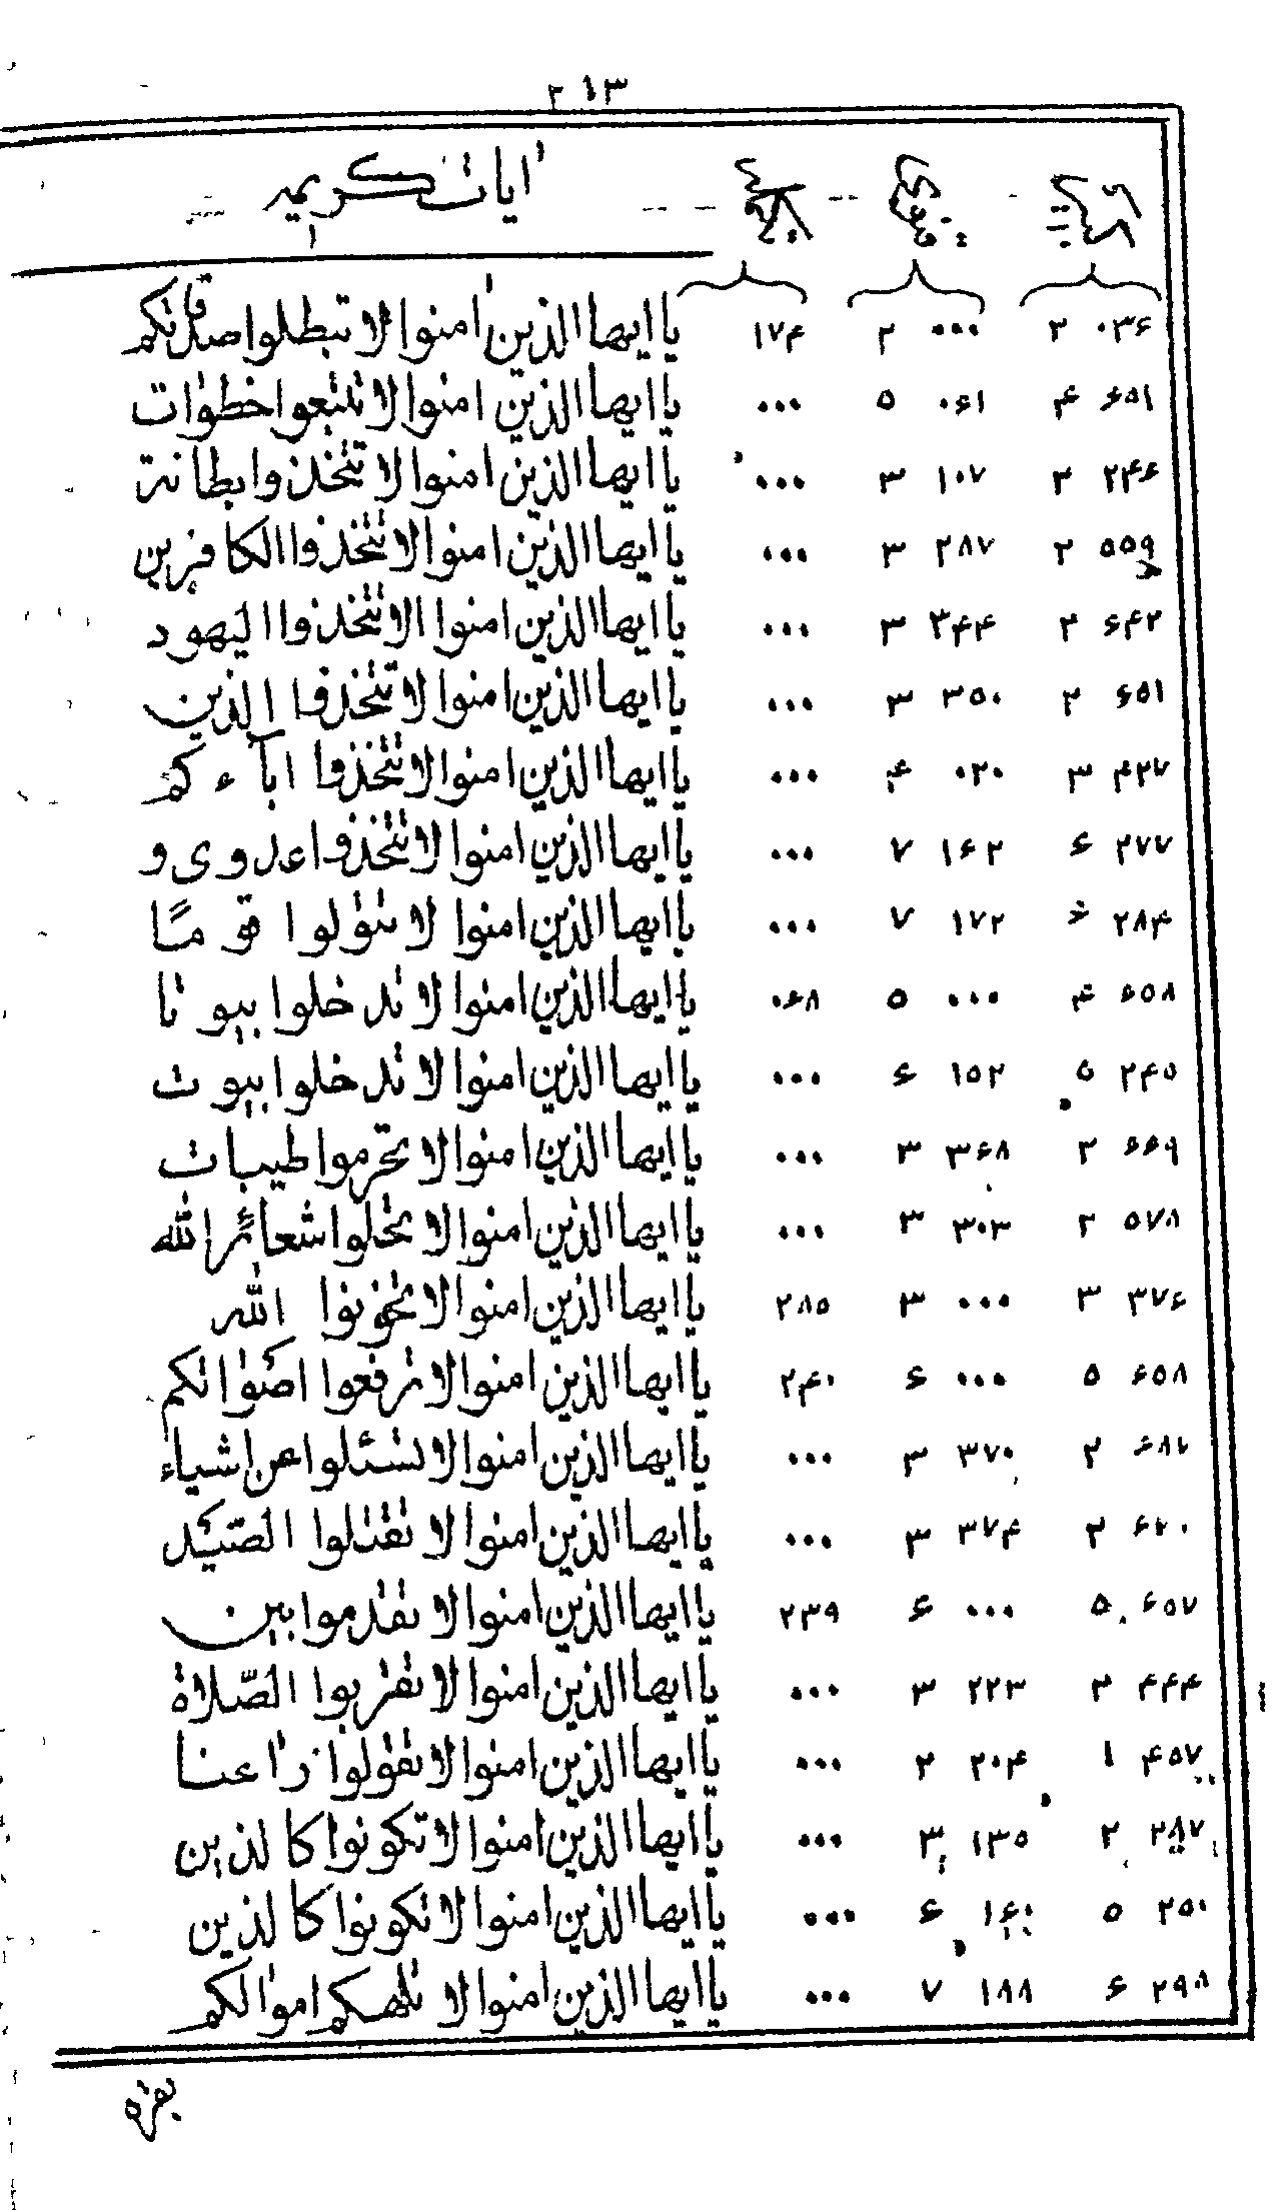 ۲۱۳
ایات کریمه
۲ ۰۳۶ ۲ ... ۱۷۴ یا ایها الذین امنوا لا تبطلوا صدقاتکم
۴ ۶۵۱ ۵ ۰۶۱ ... یا ایها الذین امنوا لا تتبعوا خطوات
۲ ۲۴۶ ۳ ۱۰۷ ... یا ایها الذین امنوا لا تتخذوا بطانة
۲ ۵۵۹ ۳ ۲۸۷ ... یا ایها الذین امنوا لا تتخذوا الکافرین
۲ ۶۴۲ ۳ ۳۴۴ ... یا ایها الذین امنوا لا تتخذوا الیهود
۲ ۶۵۱ ۳ ۳۵۰ ... یا ایها الذین امنوا لا تتخذوا الذین
۳ ۴۲۷ ۴ ۰۲۰ ... یا ایها الذین امنوا لا تتخذوا ابآءکم
۶ ۲۷۷ ۷ ۱۶۲ ... یا ایها الذین امنوا لا تتخذوا عدوی و
۶ ۲۸۴ ۷ ۱۷۲ ... یا ایها الذین امنوا لا تتولوا قومًا
۴ ۶۵۸ ۵ ... ۰۶۸ یا ایها الذین امنوا لا تدخلوا بیوتا
۵ ۲۴۵ ۶ ۱۵۲ ... یا ایها الذین امنوا لا تدخلوا بیوت
۲ ۶۶۹ ۳ ۳۶۸ ... یا ایها الذین امنوا لا تحرموا طیبات
۲ ۵۷۸ ۳ ۳۰۳ ... یا ایها الذین امنوا لا تحلوا شعائر الله
۳ ۳۷۶ ۳ ... ۲۸۵ یا ایها الذین امنوا لا تخونوا الله
۵ ۶۵۸ ۶ ... ۲۴۰ یا ایها الذین امنوا لا ترفعوا اصواتکم
۲ ۳ ۳۷۰ ... یا ایها الذین امنوا لا تسئلوا عن اشیاء
۲ ۶۷۰ ۳ ۳۷۴ ... یا ایها الذین امنوا لا تقتلوا الصّید
۵ ۶۵۷ ۶ ... ۲۳۹ یا ایها الذین امنوا لا تقدموا بین
۲ ۴۴۴ ۳ ۲۲۳ ... یا ایها الذین امنوا لا تقربوا الصّلاة
۱ ۴۵۷ ۲ ۲۰۴ ... یا ایها الذین امنوا لا تقولوا راعنا
۲ ۲۸۷ ۳ ۱۳۵ ... یا ایها الذین امنوا لا تکونوا کالذین
۵ ۲۵۰ ۶ ۱۶۰ ... یا ایها الذین امنوا لا تکونوا کالذین
۶ ۲۹۸ ۷ ۱۸۸ ... یا ایها الذین امنوا لا تلهکم اموالکم
بقره